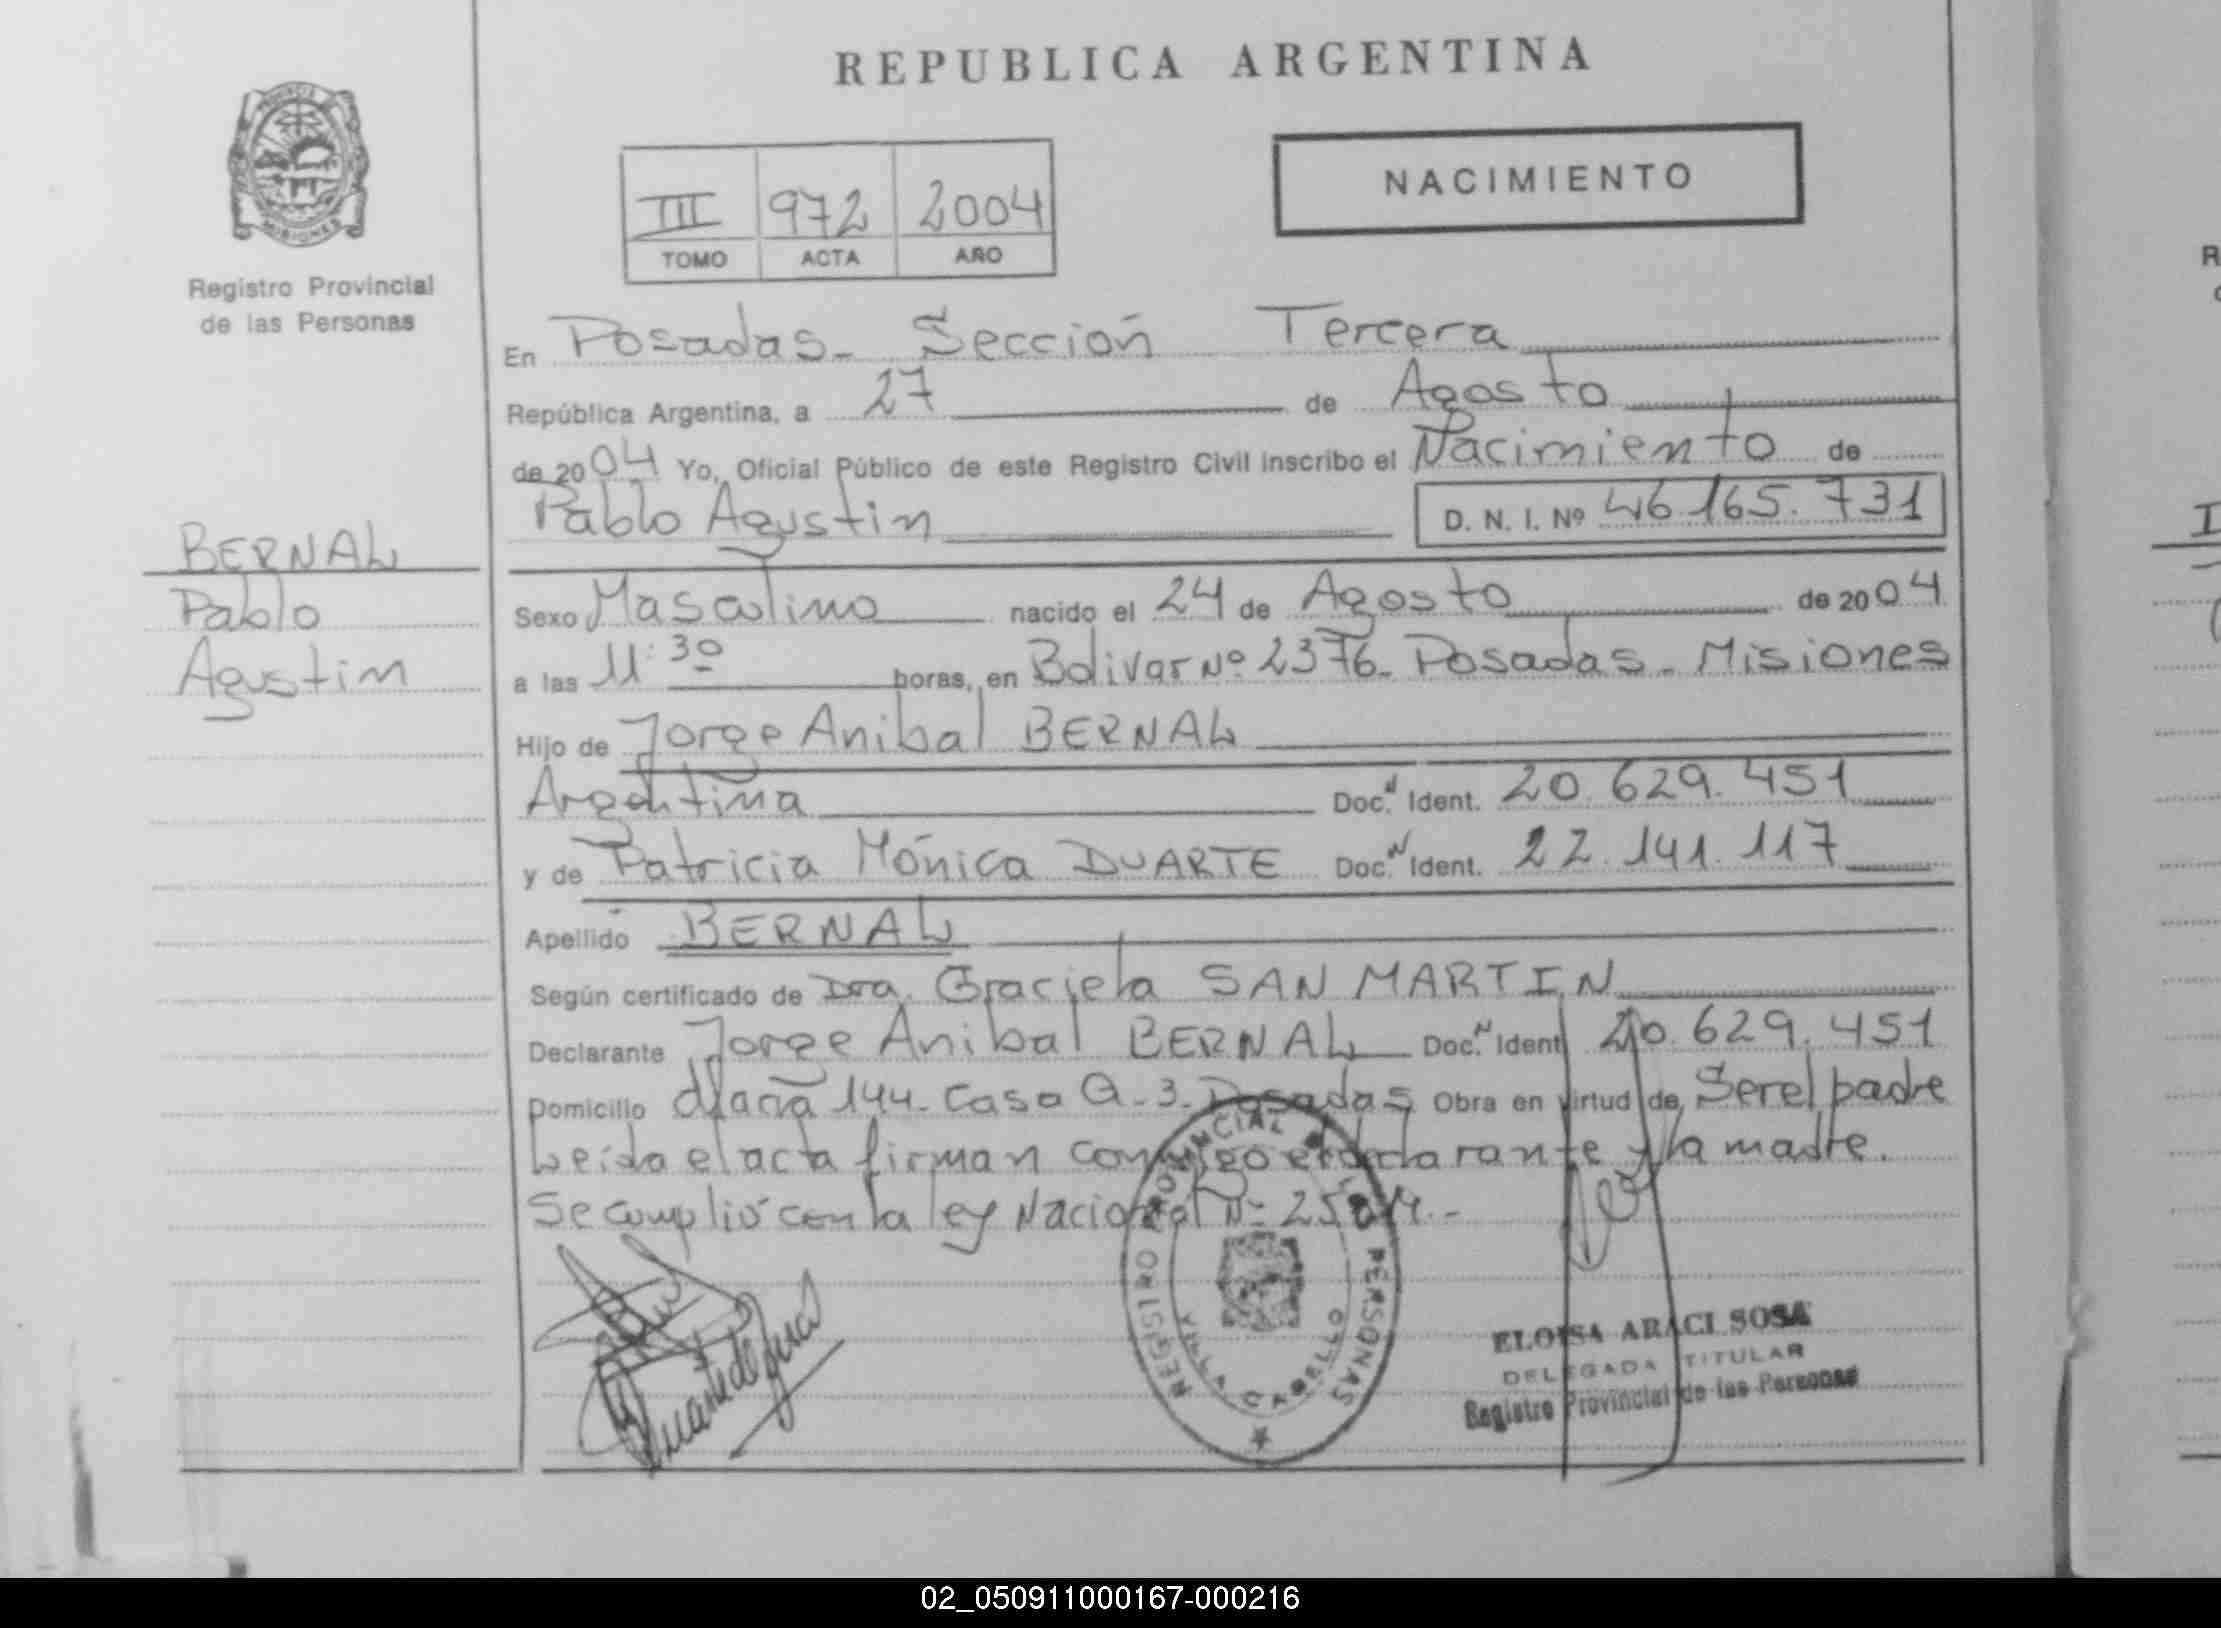 REPUBLICA ARGENTINA
PROVINCIA DE
MISIONES
Registro Provincial
de las Personas
III 972 2004
TOMO ACTA AÑO
NACIMIENTO
En Posadas - Sección Tercera
República Argentina, a 27 de Agosto
de 2004 Yo, Oficial Público de este Registro Civil inscribo el Nacimiento de
Pablo Agustin D. N. I. Nº 46.165.731
BERNAL
Pablo
Agustin
Sexo Masculino nacido el 24 de Agosto de 2004
a las 11:30 horas, en Bolivar Nº 2376 - Posadas - Misiones
Hijo de Jorge Anibal BERNAL
Argentina Doc. N Ident. 20.629.451
y de Patricia Mónica DUARTE Doc. N Ident. 22.141.117
Apellido BERNAL
Según certificado de Dra. Graciela SAN MARTIN
Declarante Jorge Anibal BERNAL Doc. N Ident 20.629.451
Domicilio 144 - Casa Q - 3 - Posadas Obra en virtud de Ser el padre
Leída el acta firman conmigo el declarante y la madre.
Se cumplió con la ley Nacional Nº
REGISTRO PROVINCIAL DE LAS PERSONAS
VILLA CABELLO
Duarte de Bernal
ELOISA ARACI SOSA
DELEGADA TITULAR
Registro Provincial de las Personas
02_050911000167-000216